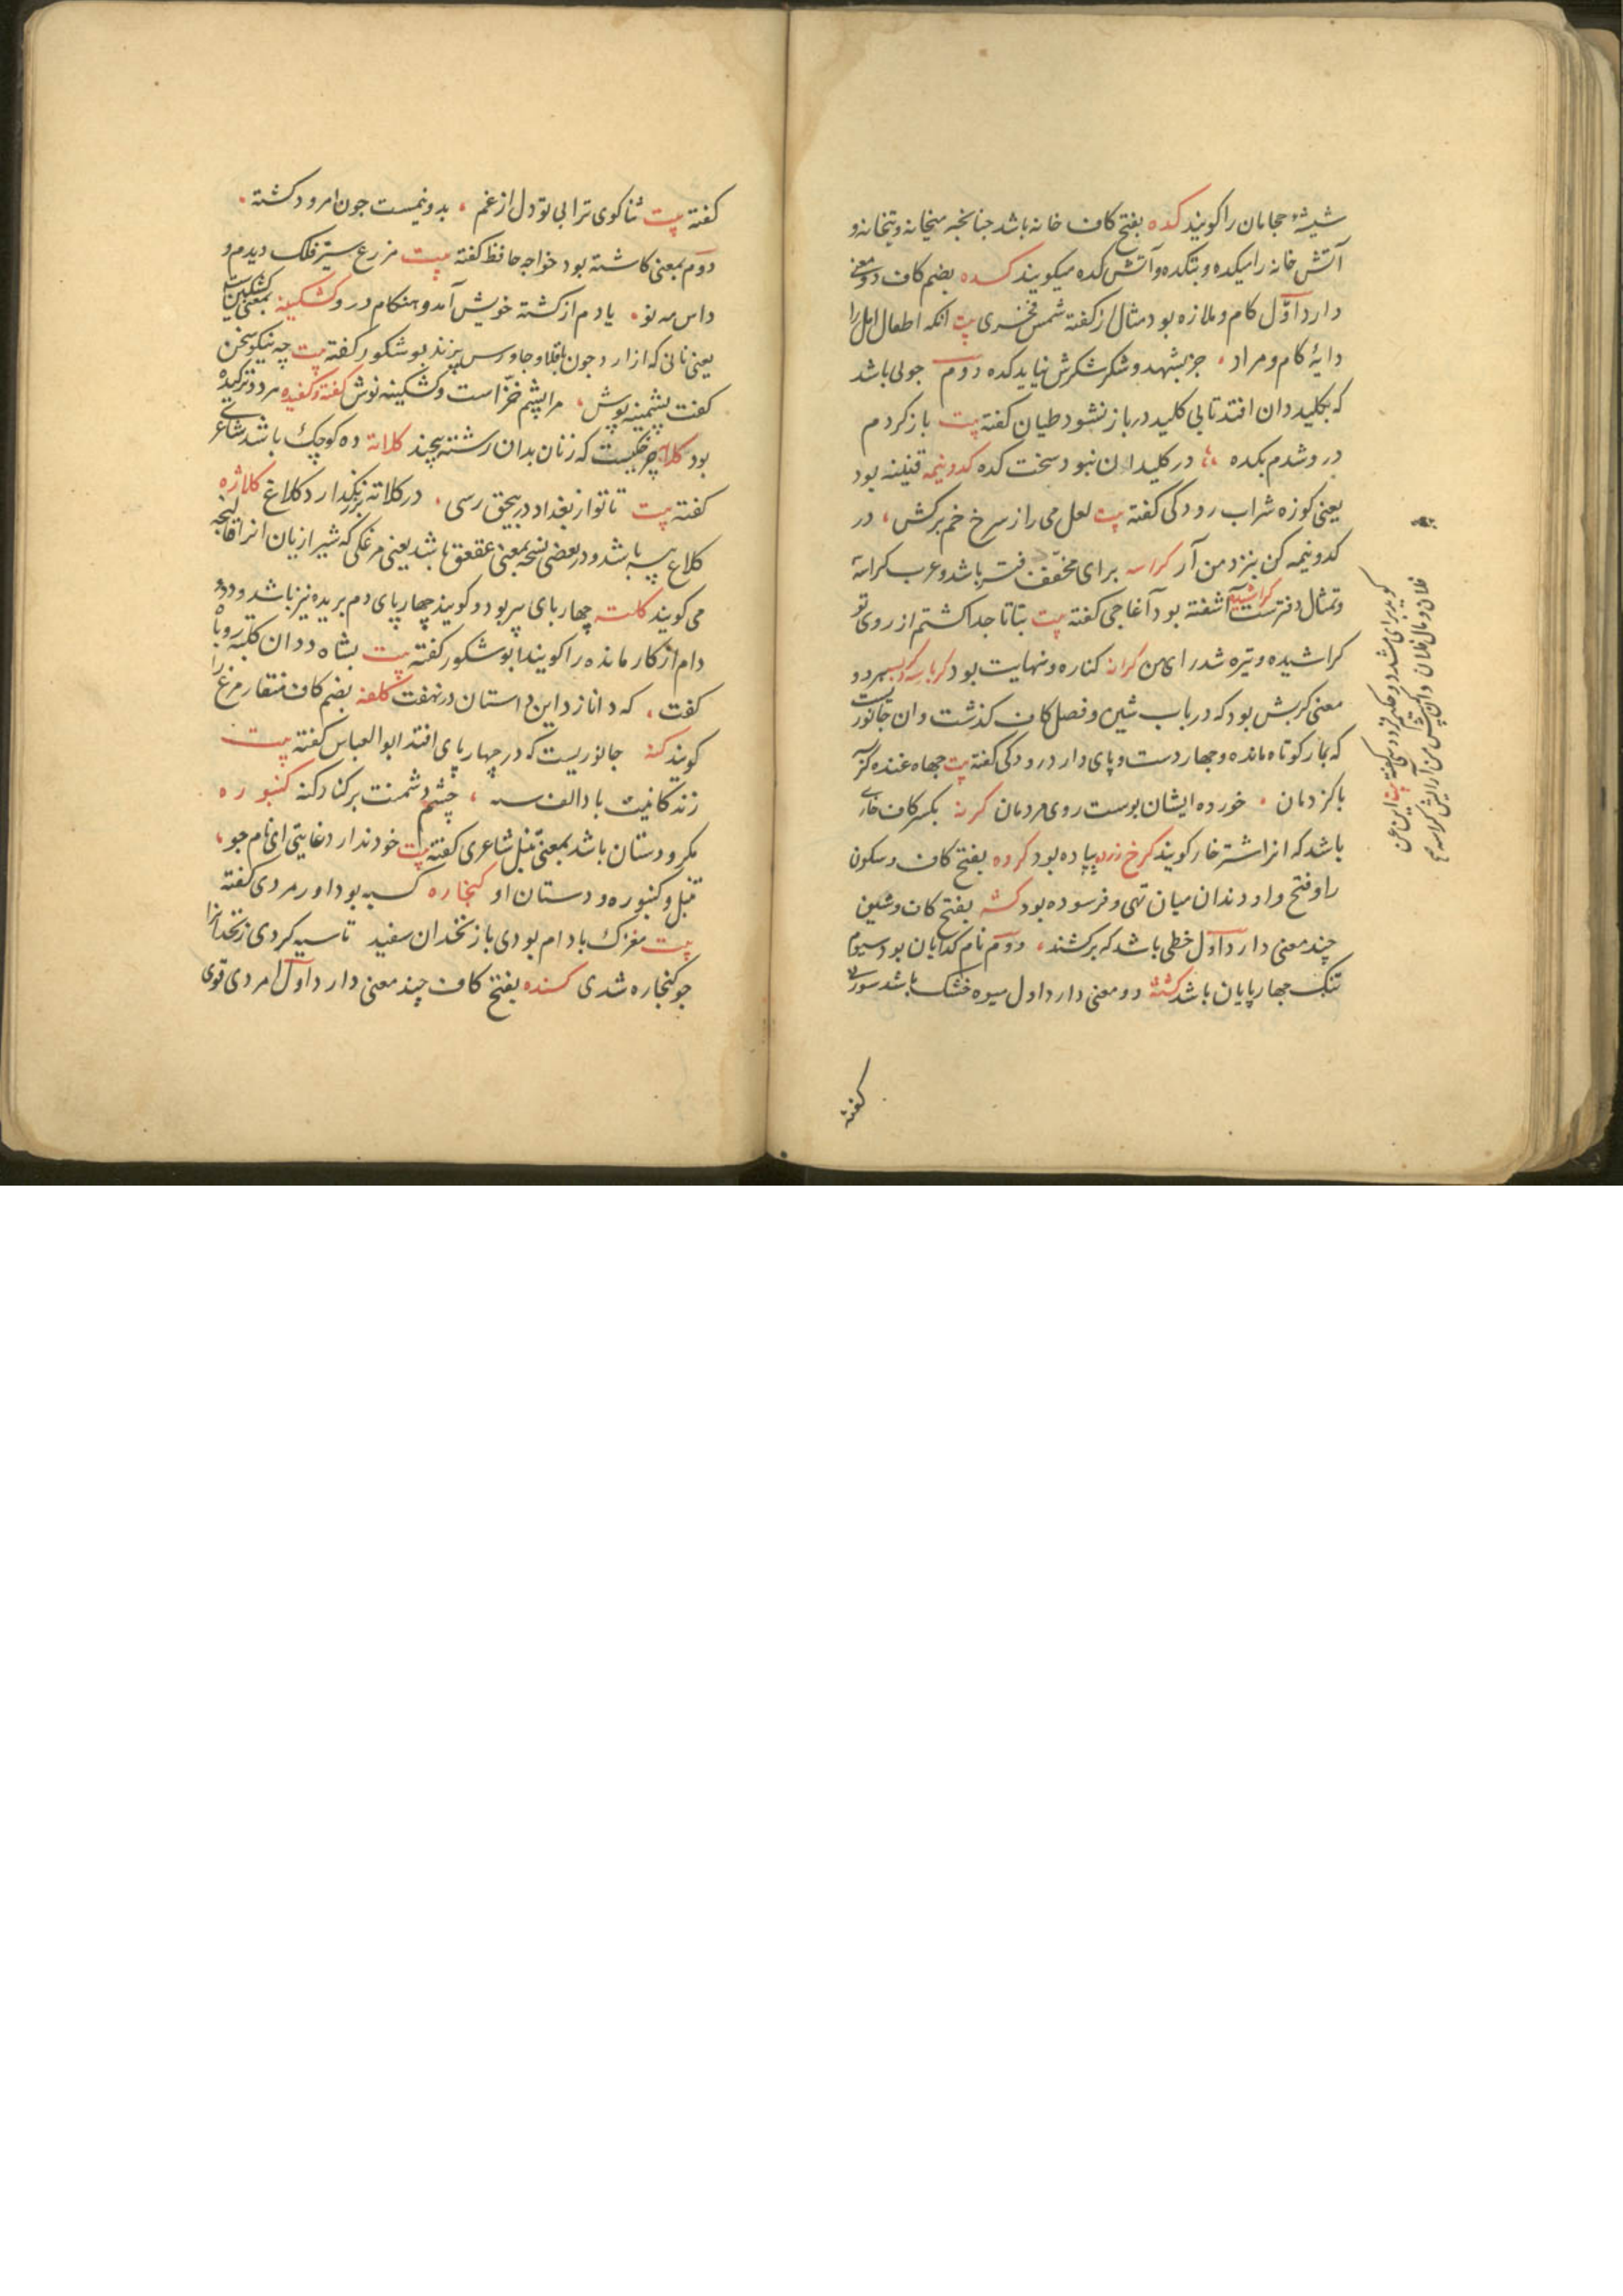 شیشهٔ حجامان را کویند کده بفتح کاف خانه باشد جنانجه میخانه و بتخانه و
آتش خانه را میکده و بتکده و آتش کده میکویند کده بضم کاف دو معنی
دارد اوّل کام و ملازه بود مثال از کفته شمس فخری بیت انکه اطفال اهل را
دایهٔ کام و مراد ، جز بشهد و شکر نیاید کده دوم جوبی باشد
که بکلیددان افتد تا بی کلید در باز نشود طیان کفته بیت باز کردم
در و شدم بکده ، در کلیدان نبود سخت کده کدونیمه قنینه بود
یعنی کوزه شراب رودکی کفته بیت لعل می را ز سرخ خم برکش ، در
کدونیمه کن بنزد من آر کراسه برای مخفّف دفتر باشد و عرب کراسه
کراشیده آشفته بود آغاجی کفته بیت بتا تا جدا کشتم از روی تو
کراشیده و تیره شد رای من کرانه کناره و نهایت بود کرباسه و کربسه هر دو
معنی کربش بود که در باب شین و فصل کاف کذشت و ان جانوریست
که بمار کوتاه مانده و جهار دست و پای دارد رودکی کفته بیت جاه غنده کربسه
با کزدمان ، خورده ایشان پوست روی مردمان کرنه بکسر کاف خاری
باشد که انرا اشترخار کویند کرخ زده پیاده بود کروه بفتح کاف و سکون
را و فتح واو دندان میان تهی و فرسوده بود کشه بفتح کاف و شین
چند معنی دارد اوّل خطی باشد که برکشند ، دوّم نام کدایان بود سیوم
تنک جهارپایان باشد کشته دو معنی دارد اول میوه خشک باشد سوزنی
کفته
کفته بیت ثنا کوی ترا بی تو دل از غم ، بدونیمست جون امرود کشته ،
دوّم بمعنی کاشته بود خواجه حافظ کفته بیت مزرع سبز فلک دیدم و
داس مه نو ، یادم از کشته خویش آمد و هنکام درو کشکینه بمعنی کشکین است
یعنی نانی که از ارد جون باقلا و جاورس پزند بو شکور کفته بیت چه نیکو سخن
کفت پشمینه پوش ، مرا پشم خزّ است و کشکینه نوش کفته و کفیده هر دو ترکیده
بود کلابه چرخیست که زنان بدان رشته پیچند کلاته ده کوچک باشد شاعر
کفته بیت تا تو از بغداد در بیحق رسی ، در کلاته بزنکذارد کلاغ کلاژه
کلاغ پیسه باشد و در بعضی نسخه بمعنی عقعق باشد یعنی مرغکی که شیرازیان انرا قالنجه
می کویند کلته چهارپای پیر بود و کویند چهارپای دم بریده نیز باشد و دد و
دام از کار مانده را کویند ابو شکور کفته بیت بشاه ددان کلته روباه
کفت ، که دانا زد این داستان در نهفت کلفه بضم کاف منقار مرغ را
کویند کنه جانوریست که در چهارپای افتد ابو العباس کفته بیت
زندکانیت باد الف سنه ، چشم دشمنت برکناد کنه کنبوره
مکر و دستان باشد بمعنی تنبل شاعری کفته بیت خود ندارد غایتی ای نام جو ،
تنبل و کنبوره و دستان او کنجاره کسبه بود اورمردی کفته
بیت مغزک بادام بودی با زنخدان سفید تا سیه کردی زنخدان را
جو کنجاره شدی کنده بفتح کاف چند معنی دارد اوّل امردی قوی